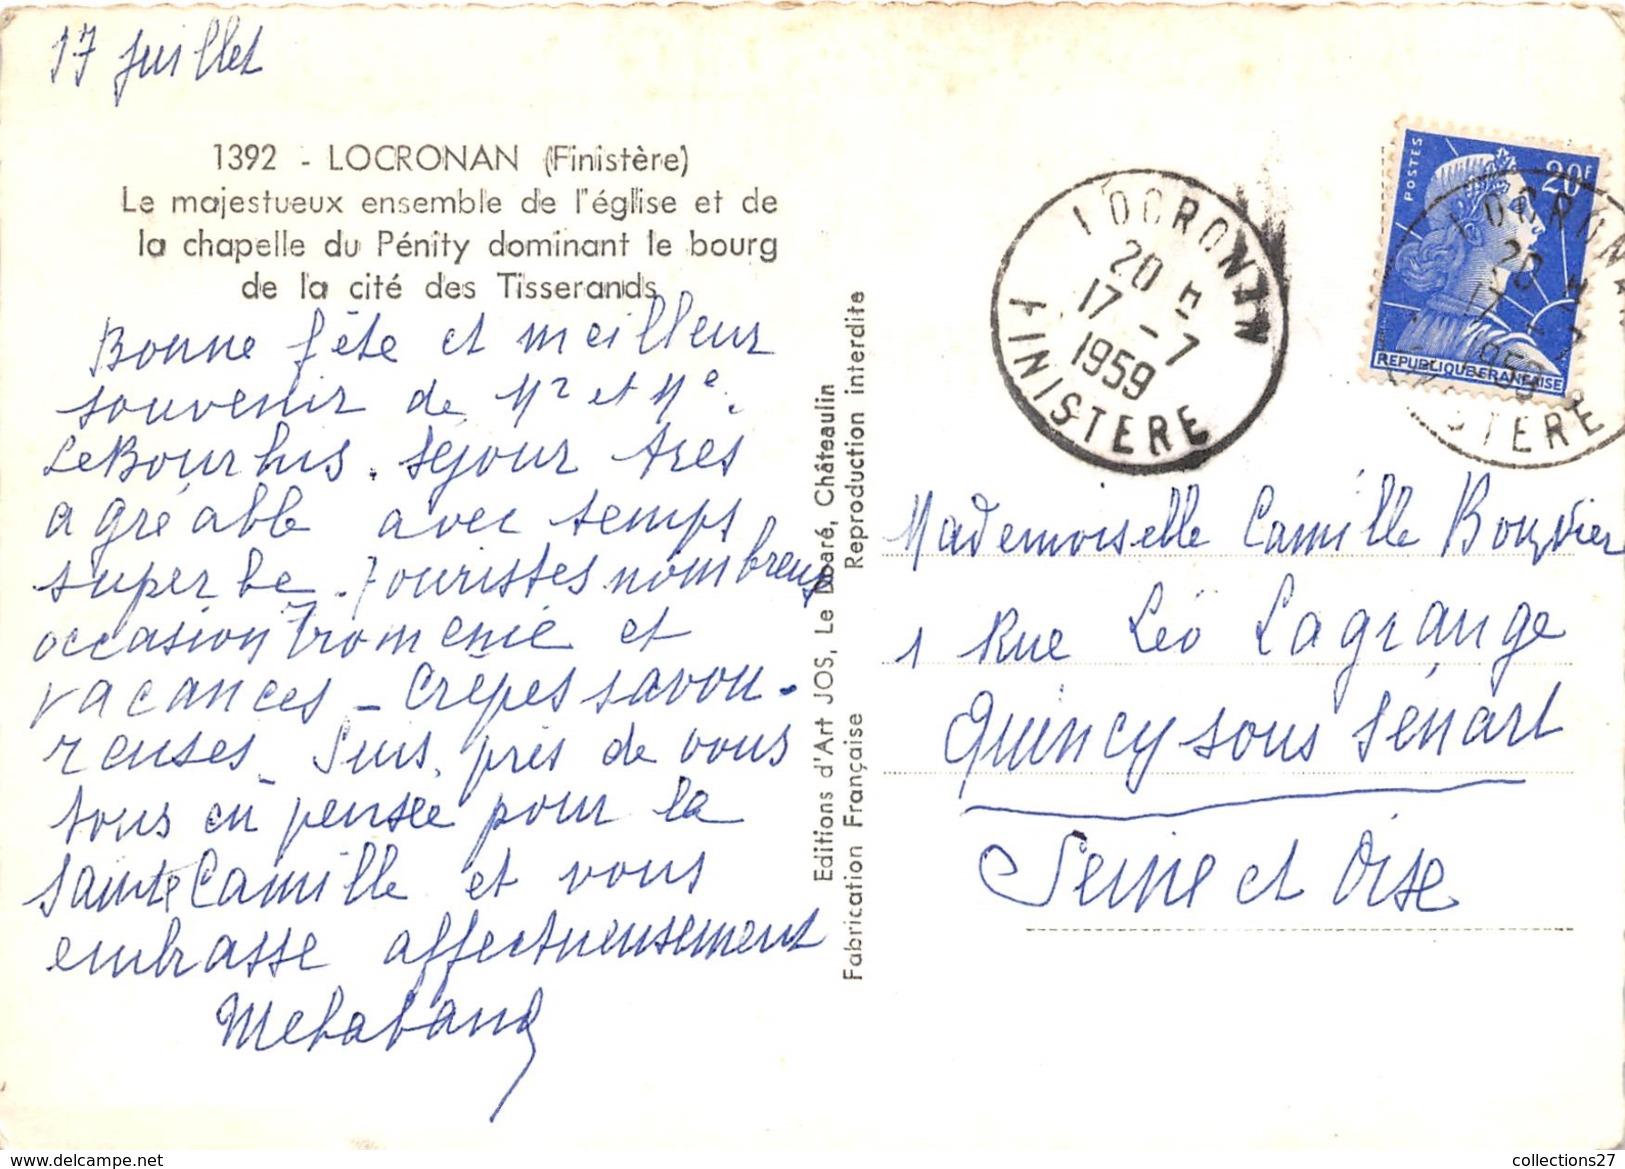 17 Juillet
1392 - LOCRONAN (Finistère)
Le majestueux ensemble de l'église et de
la chapelle du Pénity dominant le bourg
de la cité des Tisserands
Bonne fête et meilleur
souvenir de Mr et Me.
Le Bourhis. Séjour tres
agréable avec temps
superbe. Touristes nombreux
occasion Tromenie et
vacances - Crêpes savou-
reuses - Suis près de vous
tous en pensée pour la
Sainte Camille et vous
embrasse affectueusement
Editions d'Art JOS, Le Doaré, Châteaulin
Fabrication Française Reproduction interdite
LOCRONAN
20 H
17 - 7
1959
FINISTERE
POSTES
20F
REPUBLIQUE FRANÇAISE
LOCRONAN
20 H
17 - 7
1959
FINISTERE
Mademoiselle Camille Bouvier
1 Rue Léo Lagrange
Quincy sous Sénart
Seine et Oise
collections27